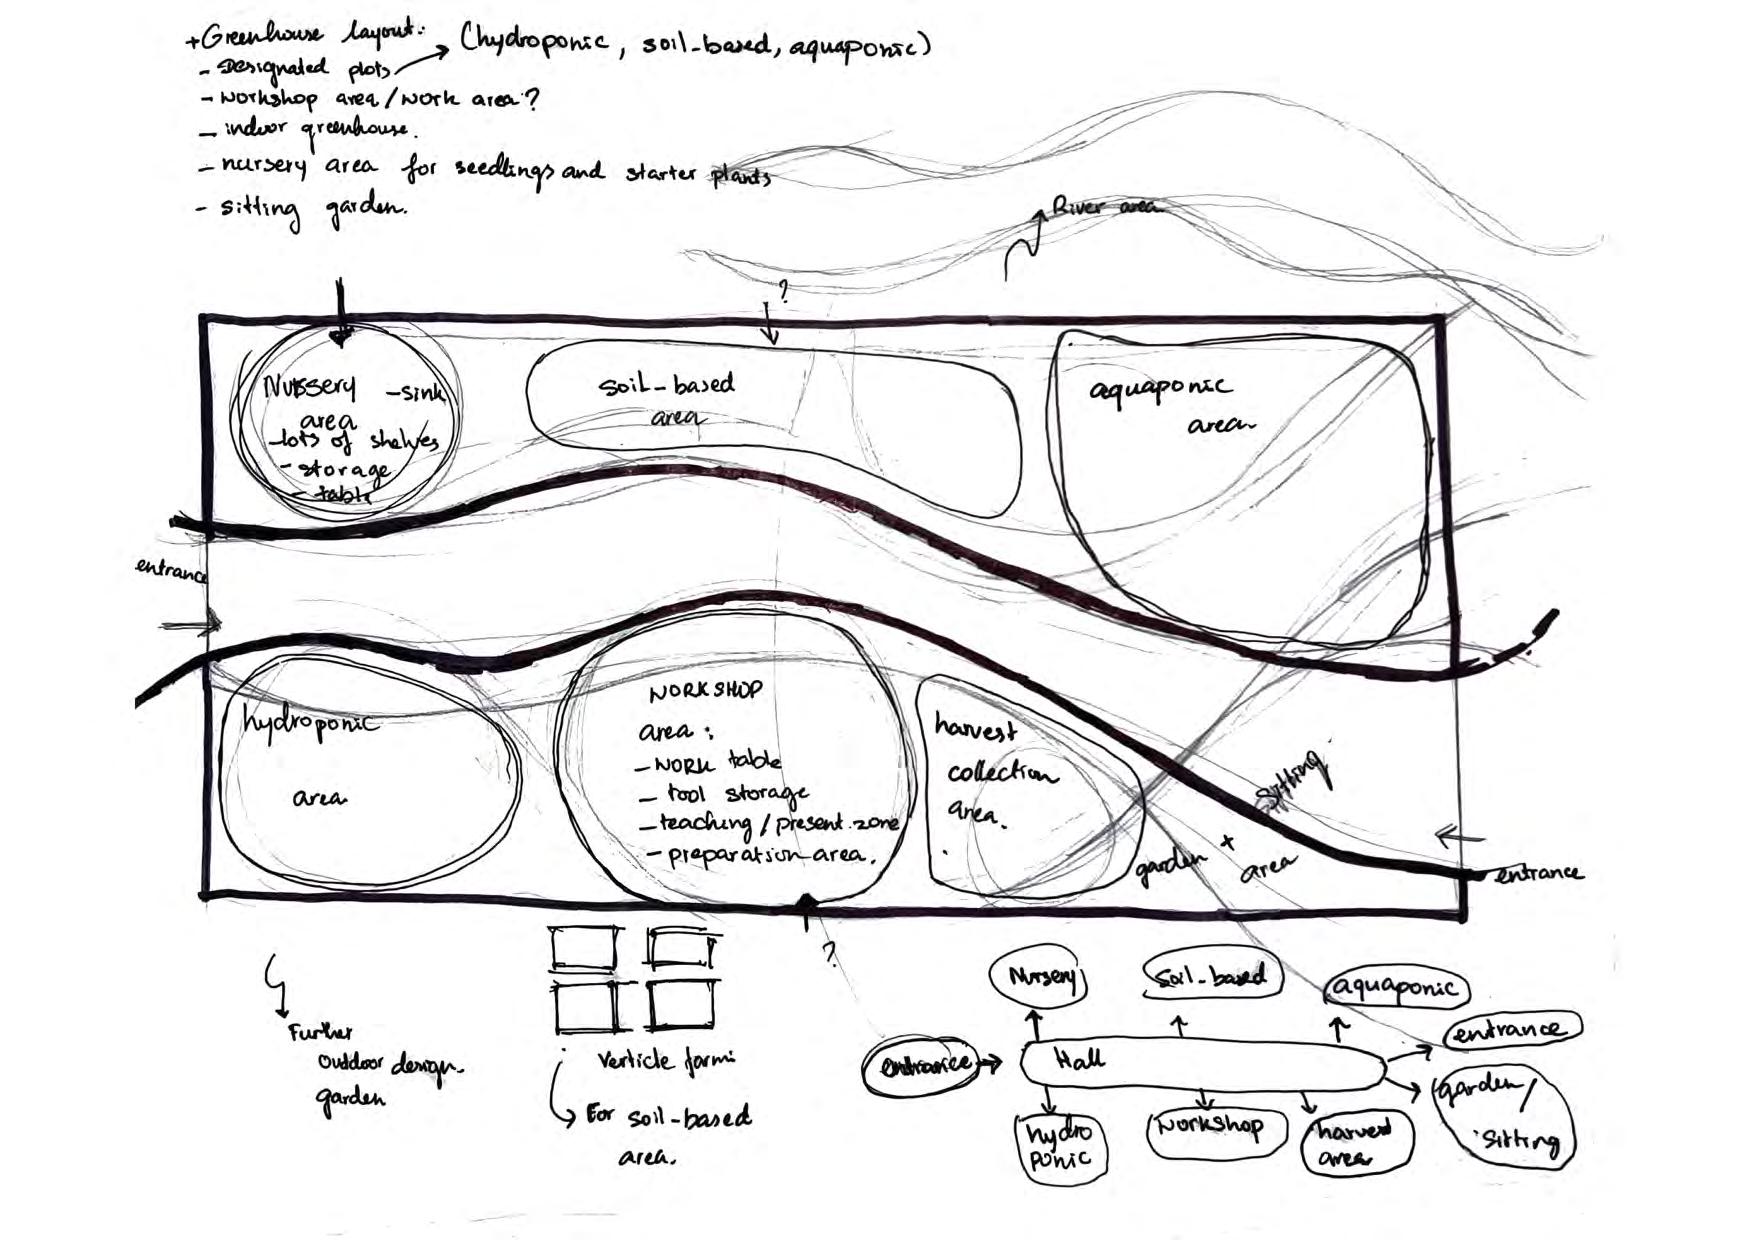 +Greenhouse layout:
- Designated plots (hydroponic, soil-based, aquaponic)
- Workshop area/work area?
- indoor greenhouse.
- nursery area for seedlings and starter plants
- sitting garden.
River area
?
Nursery -sink
area
-lots of shelves
- storage
- table
soil-based
area
aquaponic
area
entrance
hydroponic
area
WORKSHOP
area:
- work table
- tool storage
- teaching/present.zone
- preparation area.
harvest
collection
area.
Sitting
garden +
area
entrance
?
Further
outdoor design.
garden
Verticle farm:
For soil-based
area.
Nursery
soil-based
aquaponic
entrance
Hall
entrance
garden/
sitting
hydro
ponic
Workshop
harvest
area